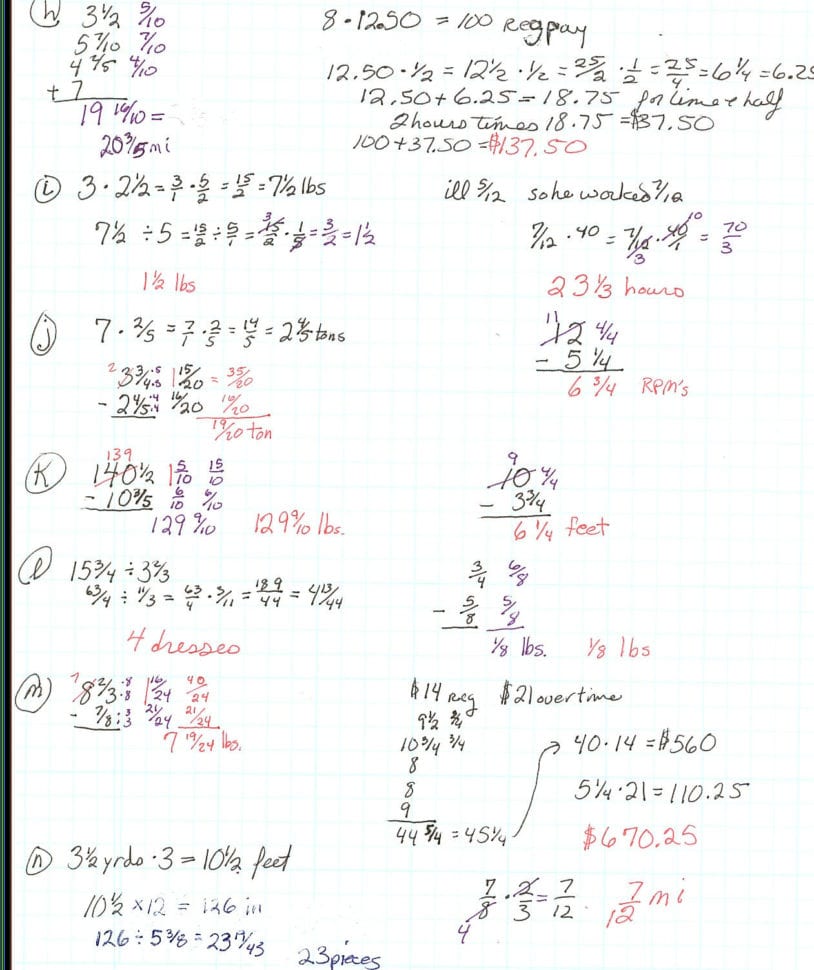 (h) 3 1/2 5/10
5 7/10 7/10
4 4/5 4/10
+ 7
19 16/10 =
20 3/5 mi
8 · 12.50 = 100 Reg pay
12.50 · 1/2 = 12 1/2 · 1/2 = 25/2 · 1/2 = 25/4 = 6 1/4 = 6.25
12.50 + 6.25 = 18.75 for time & half
2 hours times 18.75 = $37.50
100 + 37.50 = $137.50
(i) 3 · 2 1/2 = 3/1 · 5/2 = 15/2 = 7 1/2 lbs
7 1/2 ÷ 5 = 15/2 ÷ 5/1 = 15/2 · 1/5 = 3/2 = 1 1/2
3
1 1/2 lbs
ill 5/12 so he worked 7/12
7/12 · 40 = 7/12 · 40/1 = 70/3
3 10
23 1/3 hours
(j) 7 · 2/5 = 7/1 · 2/5 = 14/5 = 2 4/5 tons
2 3 3/4 ·5 ·5 1 15/20 = 35/20
- 2 4/5 ·4 ·4 16/20 16/20
19/20 ton
11 12 4/4
- 5 1/4
6 3/4 RPM's
(K) 139
140 1/2 1 5/10 15/10
- 10 3/5 6/10 6/10
129 9/10 129 9/10 lbs.
9
10 4/4
- 3 3/4
6 1/4 feet
(l) 15 3/4 ÷ 3 2/3
63/4 ÷ 11/3 = 63/4 · 3/11 = 189/44 = 4 13/44
4 dresses
3/4 6/8
- 5/8 5/8
1/8 lbs. 1/8 lbs
(m) 7 8 2/3 ·8 ·8 1 16/24 40/24
- 7/8 ·3 ·3 21/24 21/24
7 19/24 lbs.
$14 reg $21 overtime
9 1/2 2/4
10 3/4 3/4
8
8
9
44 5/4 = 45 1/4
40 · 14 = $560
5 1/4 · 21 = 110.25
$670.25
(n) 3 1/2 yrds · 3 = 10 1/2 feet
10 1/2 × 12 = 126 in
126 ÷ 5 3/8 = 23 19/43
23 pieces
7/8 · 2/3 = 7/12 . 7/12 mi
4